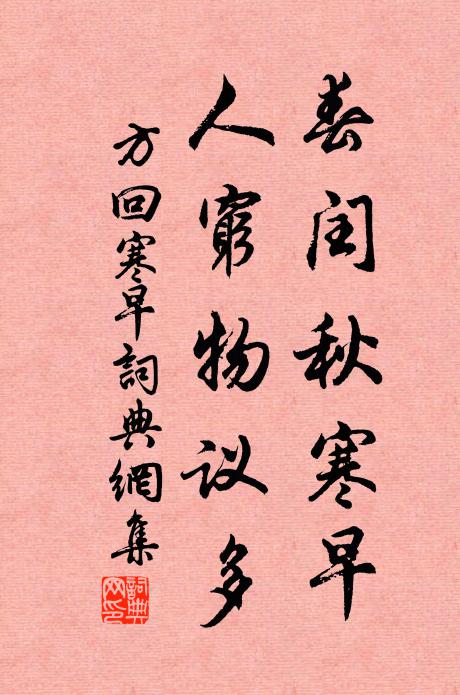 春闰秋寒早
人窮物议多
方回寒早詞典網集
詞典
网印